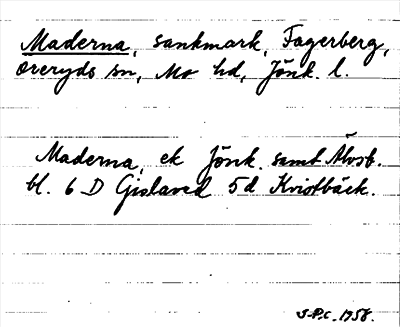 Maderna, sankmark, Fagerberg,
Öreryds sn, Mo hd, Jönk. l.
Maderna, ek Jönk. samt Älvsb.
bl. 6 D Gislaved 5d Kvistbäck.
S.P.C. 1958.